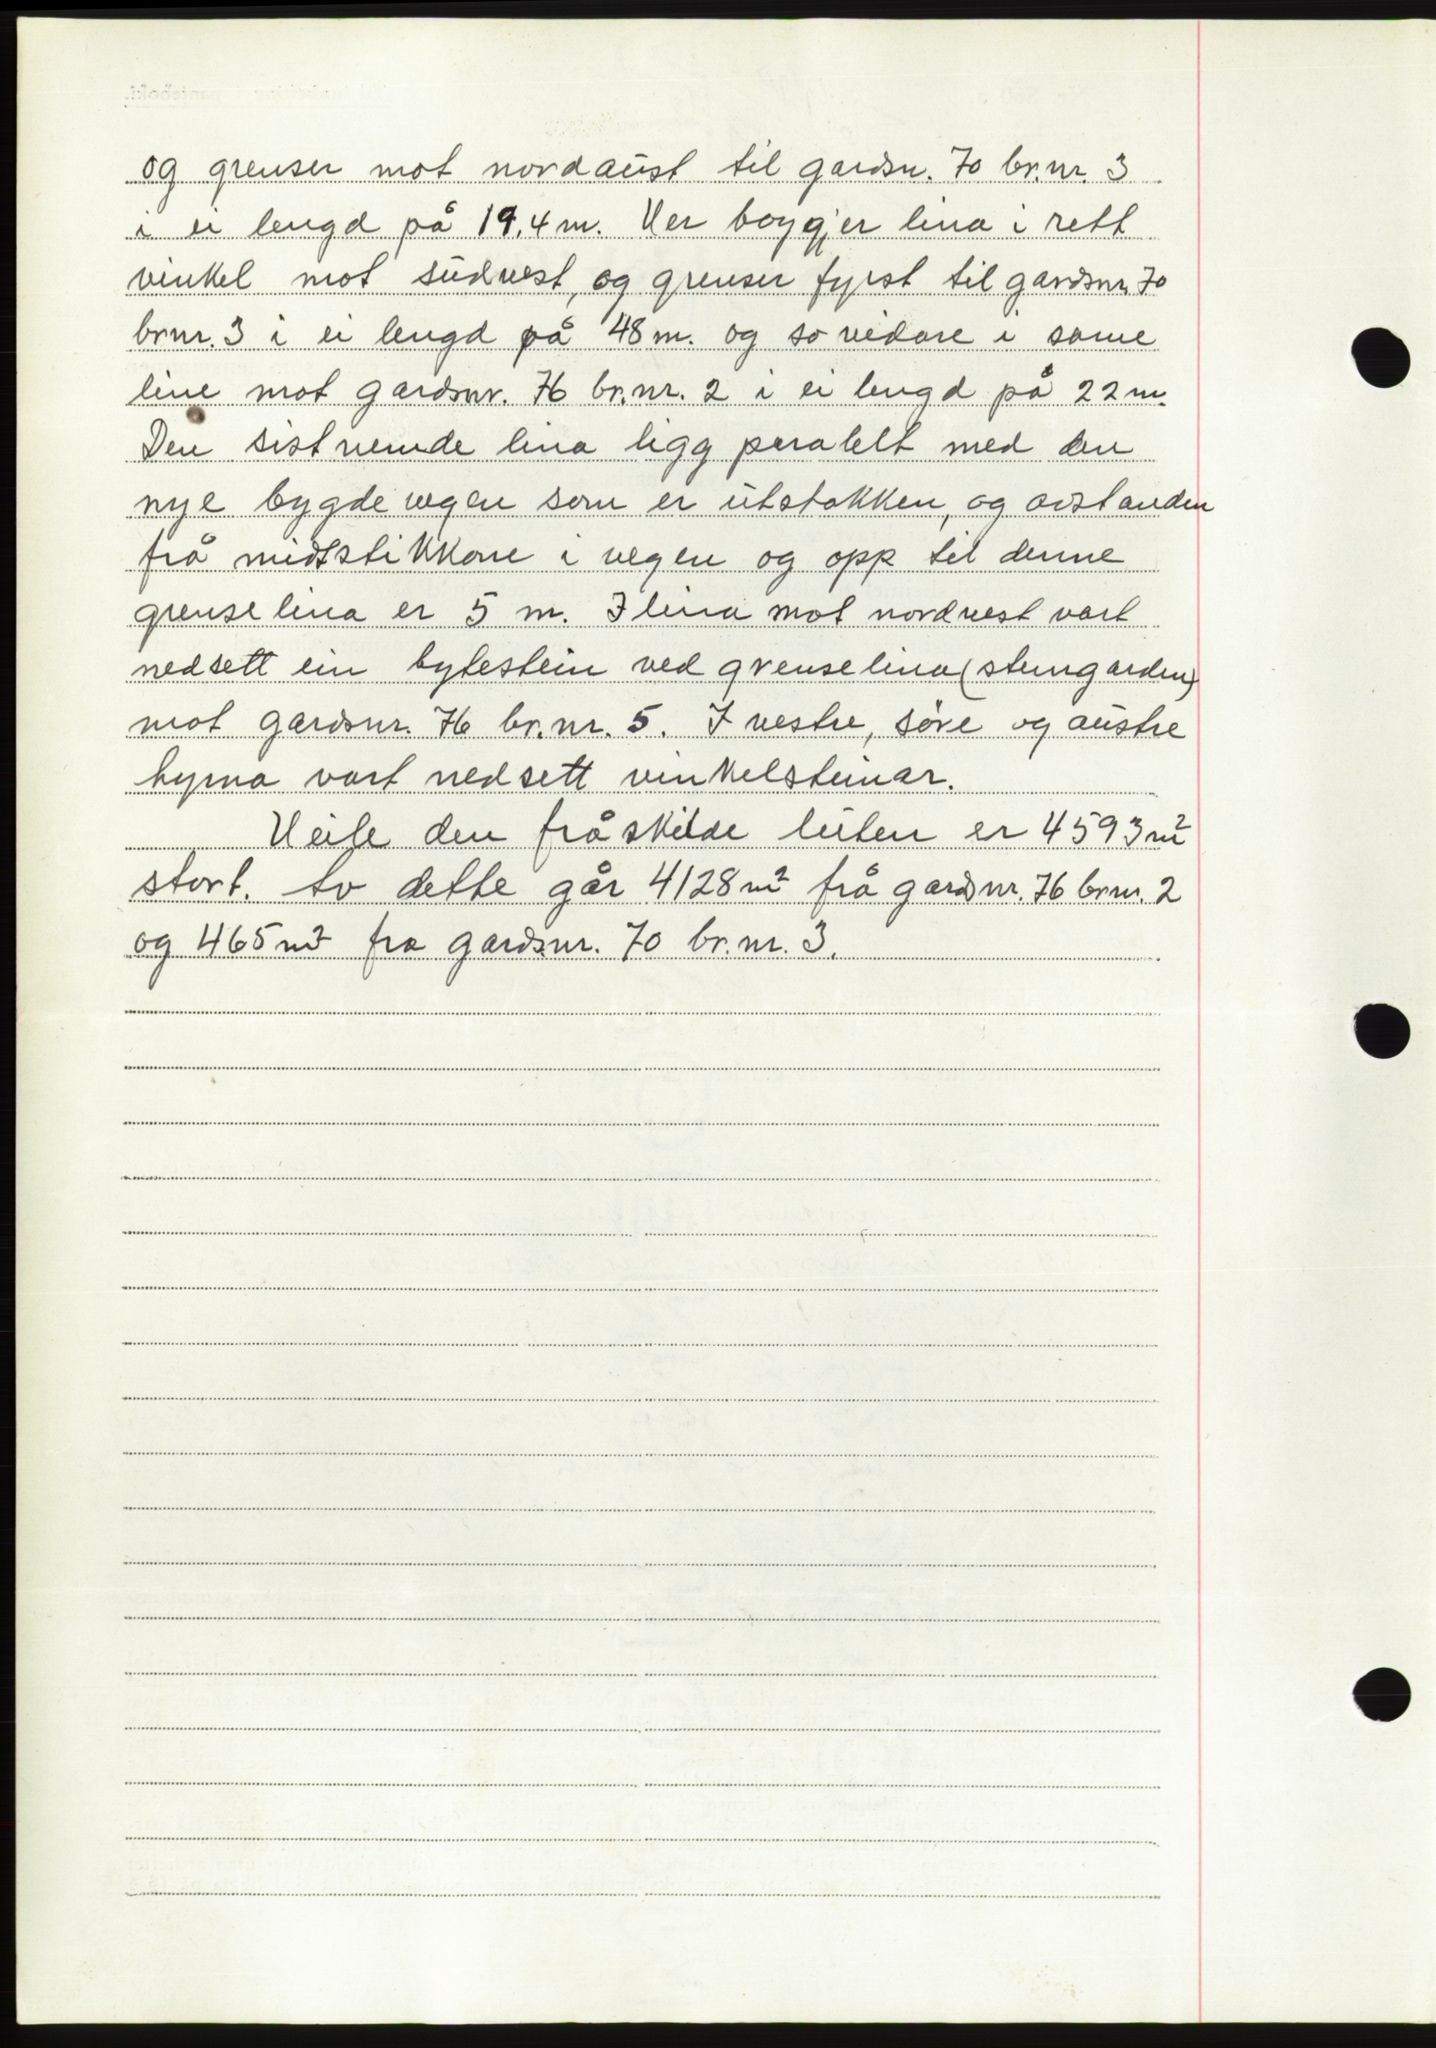 og grenser mot nordaust til gardsn. 70 br.nr. 3
i ei lengd på 19,4 m. Her boygjer lina i rett
vinkel mot südvest, og grenser fyrst til gardsnr. 70
br.nr. 3 i ei lengd på 48 m. og so vidare i same
line mot gardsnr. 76 br.nr. 2 i ei lengd på 22 m.
Den sist nemde lina ligg paralelt med den
nye bygdevegen som er utstokken, og avstanden
frå midtstikkane i vegen og opp til denne
grenselina er 5 m. I lina mot nordvest vart
nedsett ein bytestein ved grenselina (steingarden)
mot gardsnr. 76 br.nr. 5. I vestre, søre og austre
hyrna vart nedsett vinkelsteinar.
Heile den fråskilde luten er 4593 m²
stort. Av dette går 4128 m² frå gardsnr. 76 br.nr. 2
og 465 m² fra gardsnr. 70 br.nr. 3.